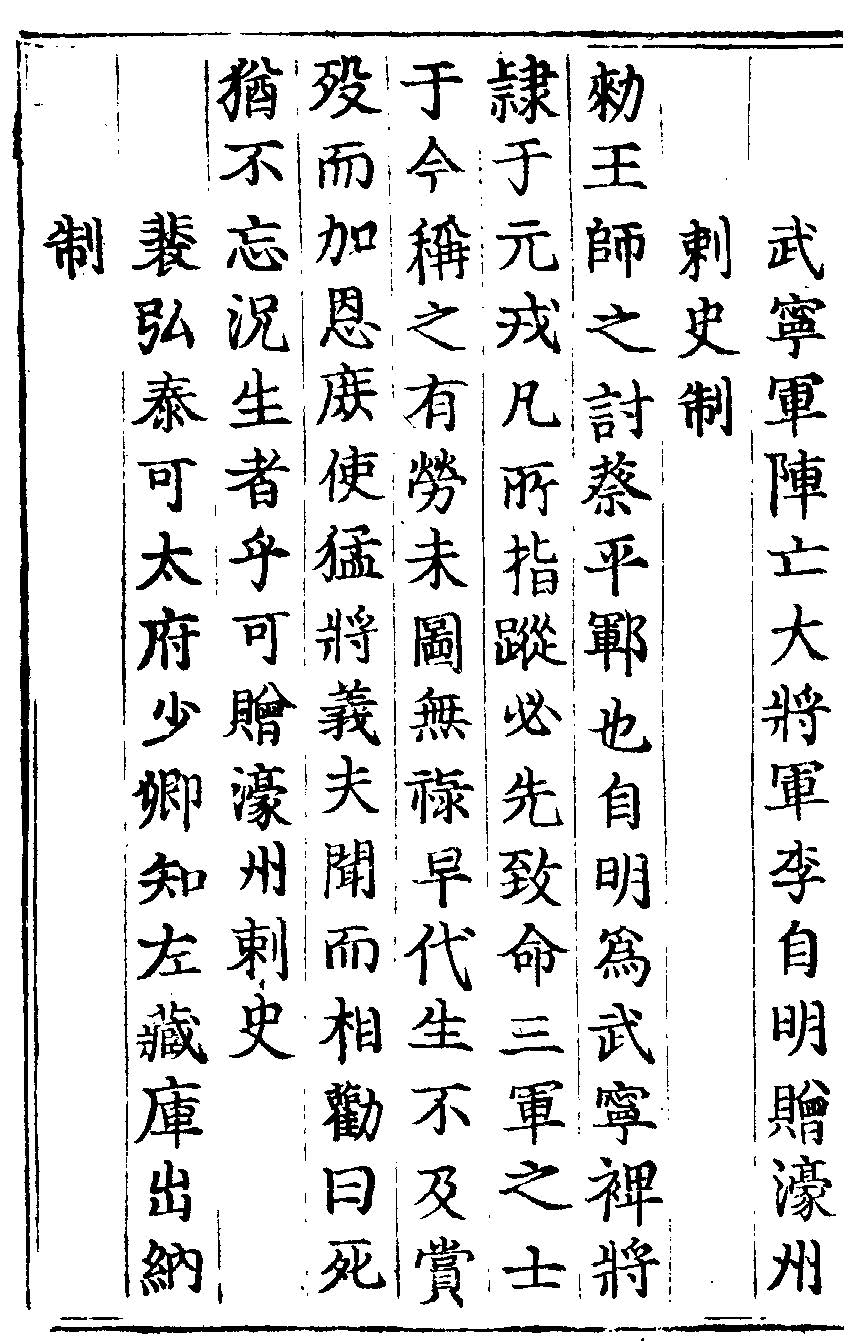 武寧軍陣亡大將軍李自明贈濠州
刺史制
勑王師之討蔡平鄆也自明爲武寧裨將
隷于元戎凡所指蹤必先致命三軍之士
于今稱之有勞未圖無祿早代生不及賞
歿而加恩庻使猛將義夫聞而相勸曰死
猶不忘況生者乎可贈濠州刺史
裴弘泰可太府少卿知左藏庫出納
制